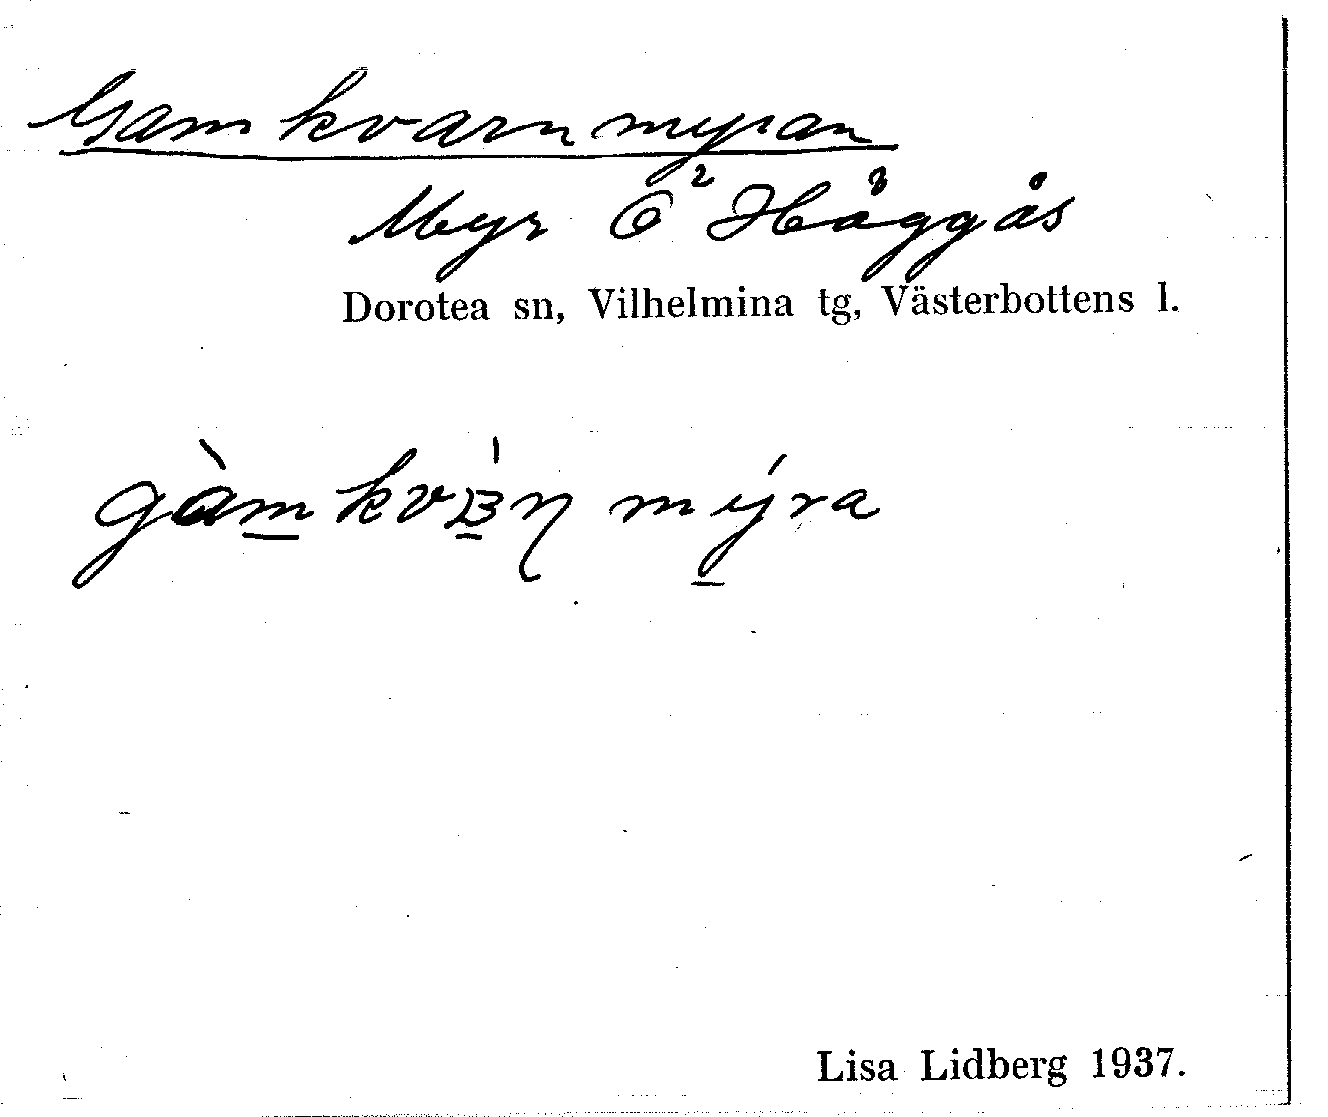 Gamkvarnmyran
Myr Ö² Håggås
Dorotea sn, Vilhelmina tg, Västerbottens l.
mýra
Lisa Lidberg 1937.